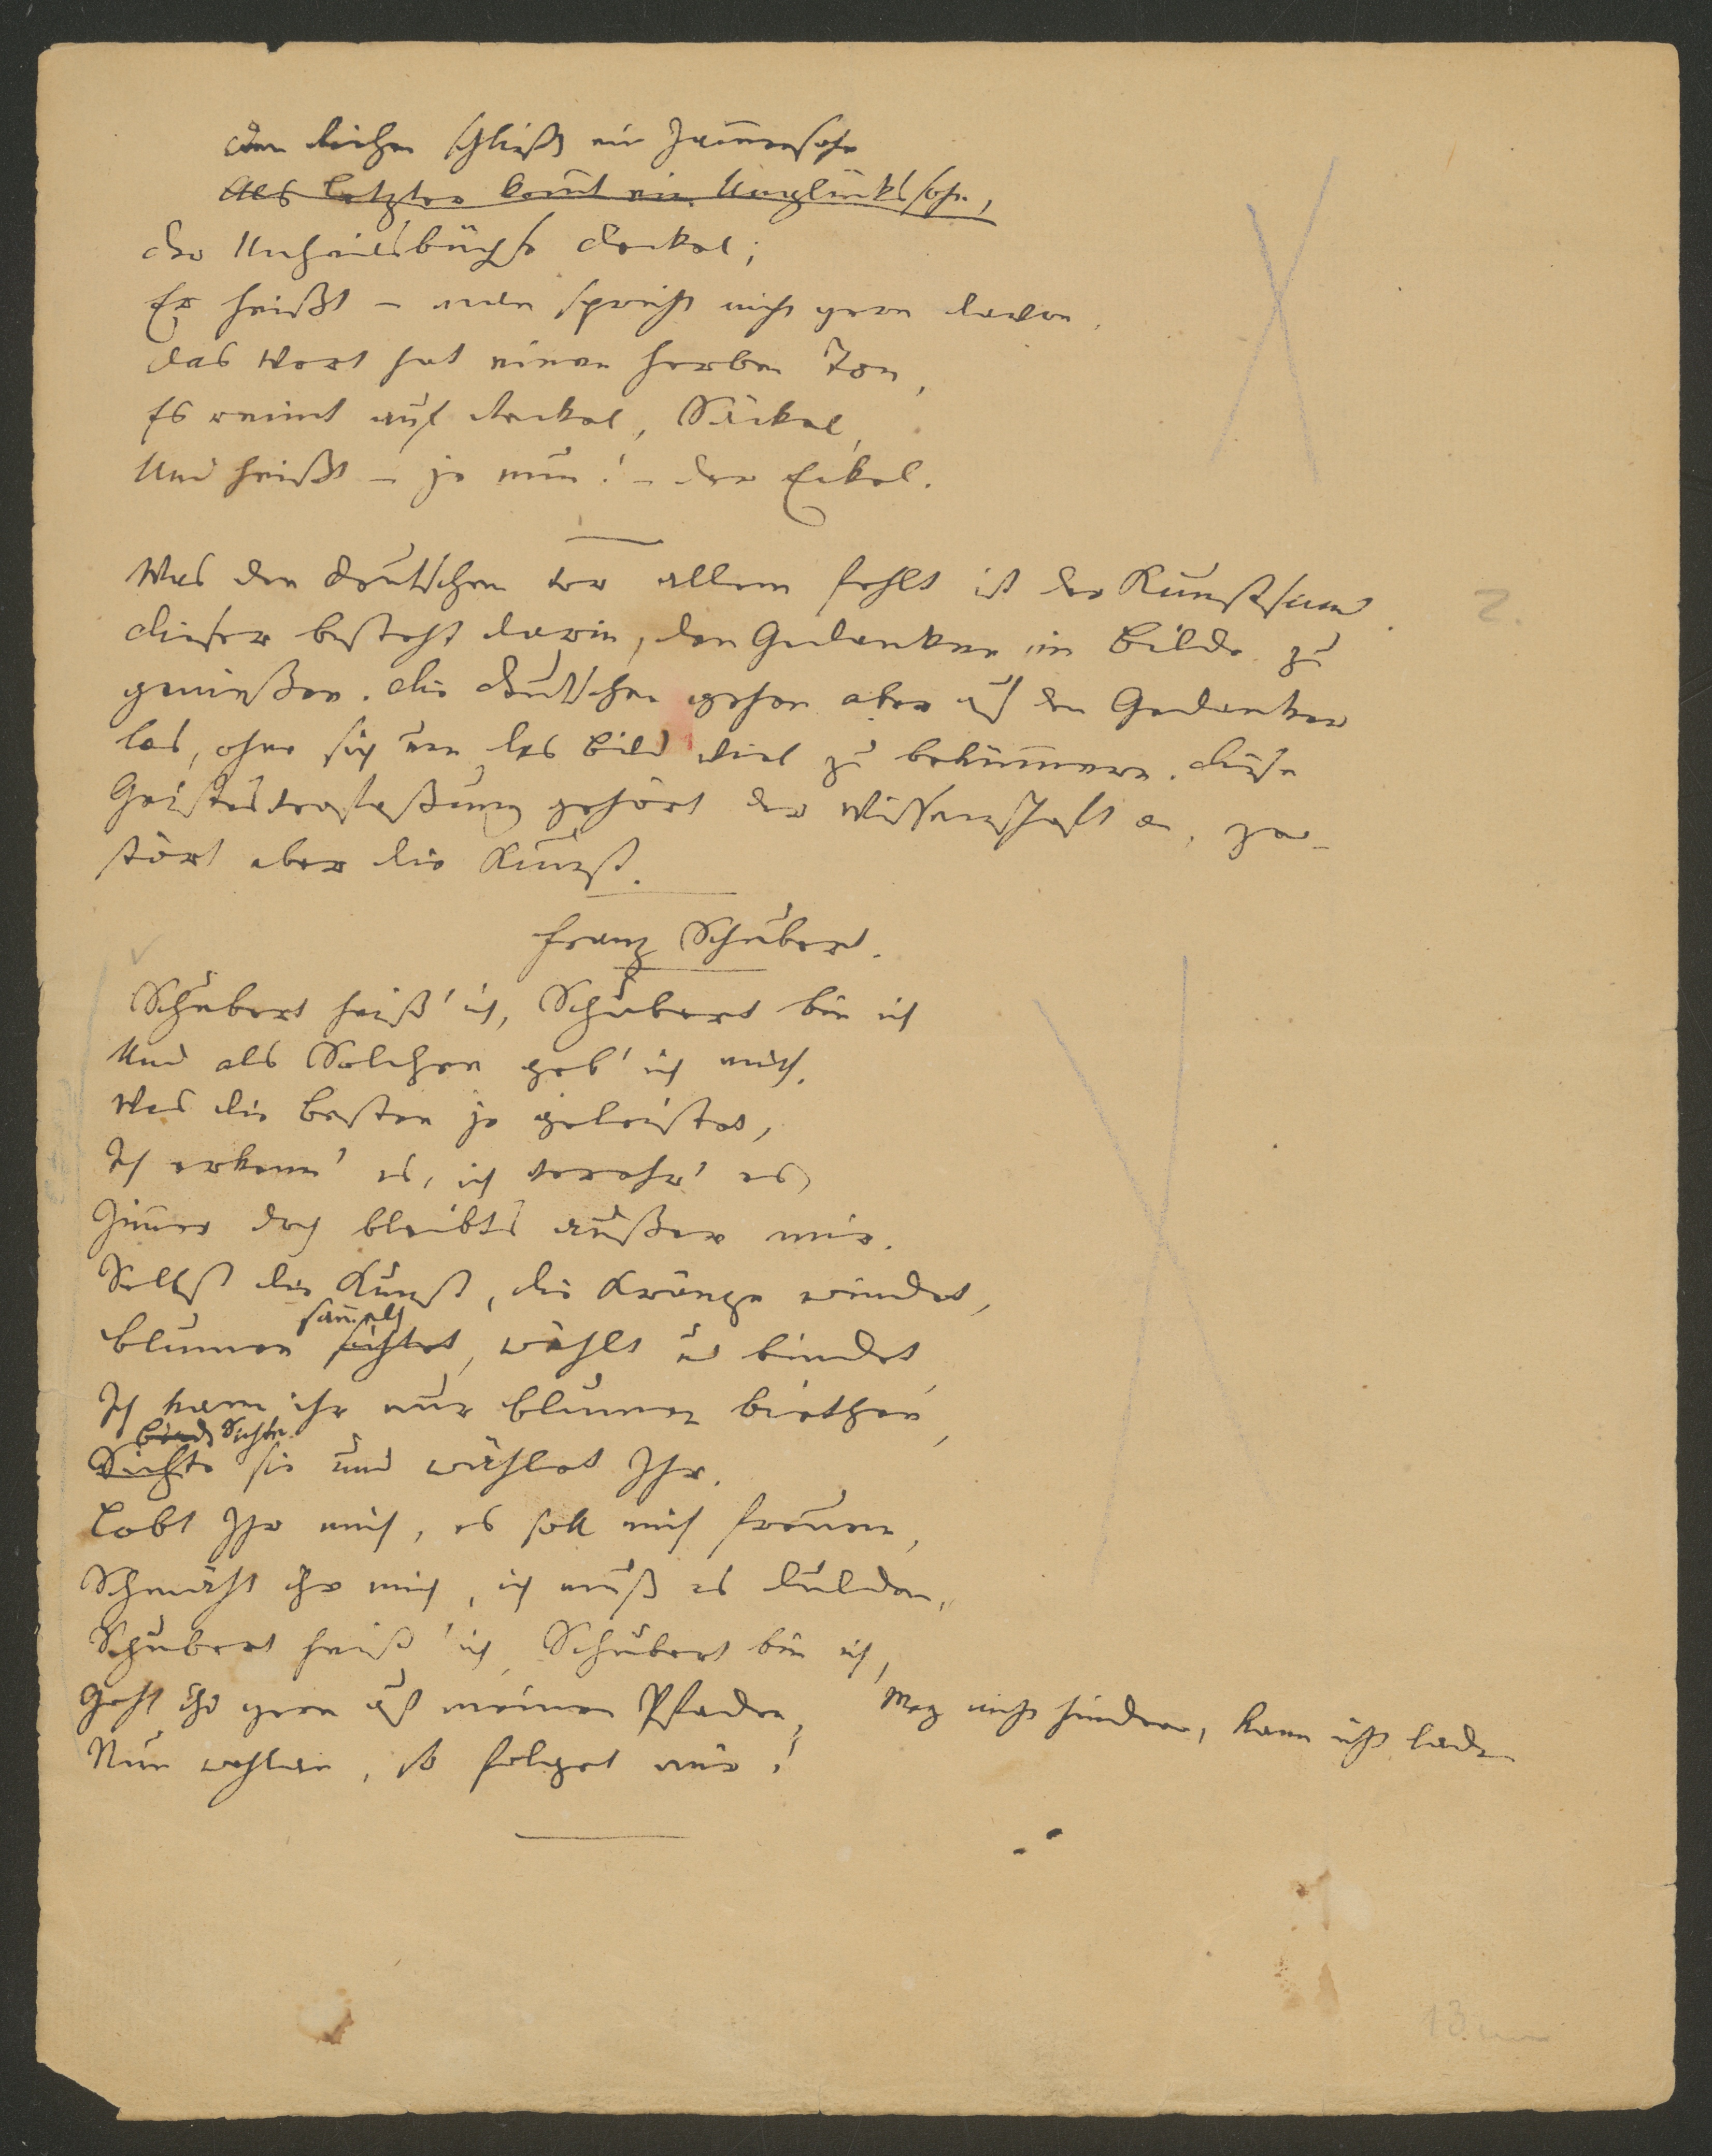 Den Reihen schließt ein Jam̄ersohn
Als letzter kom̄t ein Unglückssohn,
Der Unheilsbüchse Deckel;
Er heißt – man spricht nicht gern davon,
Das Wort hat einen herben Ton,
Es reimt auf Deckel, Säckel,
Und heißt – je nun! – der Eckel.
Was den Deutschen vor allem fehlt ist der Kunstsinn.
Dieser besteht darin, den Gedanken im Bilde zu
genießen. Die Deutschen gehen aber auf den Gedanken
los, ohne sich um das Bild viel zu beküm̄ern. Diese
Geistesverfaßung gehört der Wissenschaft an, zer-
stört aber die Kunst.
Franz Schubert.
Schubert heiß' ich, Schubert bin ich
Und als Solchen geb' ich mich.
Was die Besten je geleistet,
Ich erkenn' es, ich verehr' es,
Im̄er doch bleibts außer mir.
Selbst die Kunst, die Kränze windet,
sam̄elt
Blumen sichtet, wählt u bindet,
Ich kann ihr nur Blumen biethen,
Sichte
Sichte sie und wählet Ihr.
Lobt Ihr mich, es soll mich freuen,
Schmäht ihr mich, ich muß es dulden,
Schubert heiß' ich, Schubert bin ich,
Mag nicht hindern, kann nicht laden
Geht ihr gern auf meinen Pfaden,
Nun wohlan, so folget mir!
2.
13